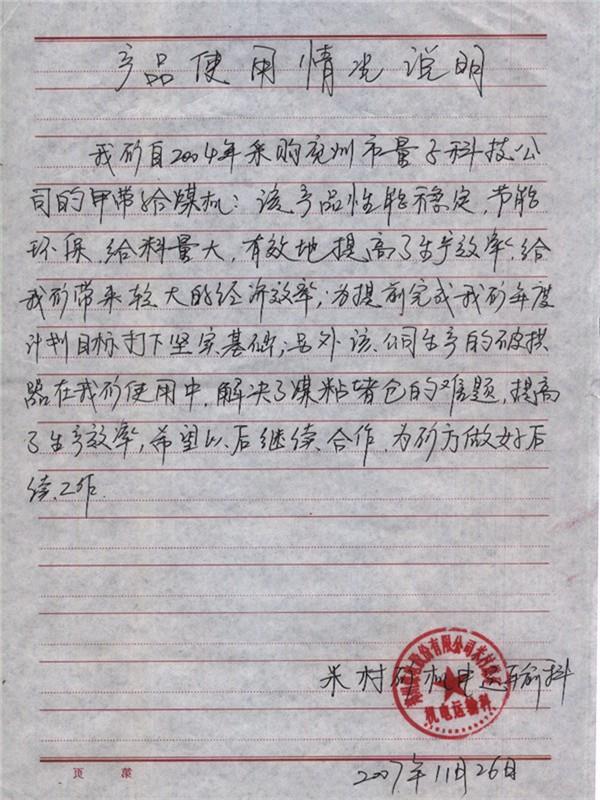 产品使用情况说明
我矿自2004年采购兖州市量子科技公
司的甲带给煤机；该产品性能稳定，节能
环保，给料量大，有效地提高了生产效率，给
我矿带来较大的经济效率；为提前完成我矿年度
计划目标打下坚实基础；另外该公司生产的破拱
器在我矿使用中，解决了煤粘堵仓的难题，提高
了生产效率，希望以后继续合作，为矿方做好后
续工作.
股份有限公司米村
米村矿机电运输科
机电运输科
2007年11月26日
页 第